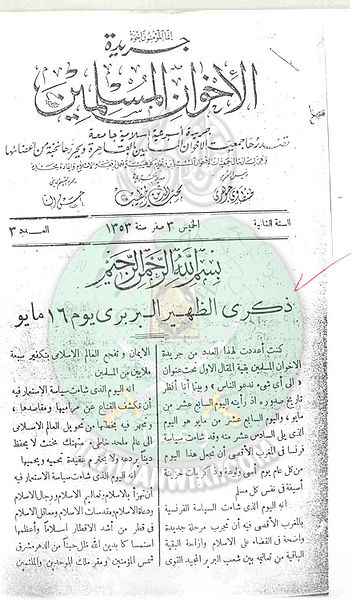 إنما المؤمنون إخوة
جريدة
الإخوان المسلمين
جريدة أسبوعية إسلامية جامعة
تصدرها جمعيت الإخوان المسلمين بالقاهرة ويحررها نخبة من أعضائها
السنة الثانية
الخميس ٣ صفر سنة ١٣٥٣
العدد ٣
بسم الله الرحمن الرحيم
ذكرى الظهير البربرى يوم ١٦ مايو
كنت أعددت لهذا العدد من جريدة
الاخوان المسلمين بقية المقال الاول تحت عنوان
« الى أى شىء ندعو الناس » وبينا أنا أنظر
تاريخ صدوره اذ رأيته اليوم السابع عشر من
مايو ، واليوم السابع عشر من مايو هو اليوم
الذى يلى السادس عشر منه وقد شاءت سياسة
فرنسا فى المغرب الأقصى أن تجعل هذا اليوم
من كل عام يوم أسى ولوعة وذكريات حزينة
أسيفة فى نفس كل مسلم
إنه اليوم الذى شاءت السياسة الفرنسية
بالمغرب الأقصى فيه أن تجرب مرحلة جديدة
واضحة فى القضاء على الاسلام وازاحة البقية
الباقية من تعاليمه بين شعب البربر المجيد القوى
الايمان وتفجع العالم الاسلامى بتكفير سبعة
ملايين من المسلمين
انه اليوم الذى شاءت سياسة الاستعمار فيه
أن تكشف القناع عن مراميها ومقاصدها ،
وتجهر فيه بخطتها من تحويل العالم الاسلامى
الى عالم ملحد خاطئ متهتك مخنث لا يحفظ
دينا يردعه ولا يتحيز لعقيدة تحميه ويحميها
انه اليوم الذى شاءت سياسة الاستعمار فيه
أن تهزأ بالاسلام وتعاليم الاسلام ورجال الاسلام
ودعاة الاسلام ومقدسات الاسلام ومعاقل الاسلام
فى قطر من أشد الاقطار اسلاما وأعظمها
استمساكا بدين الله ظل حينا من الدهر مشرق
شمس المؤمنين ومقر ملك الموحدين والملثمين
IKHWANWIKI.COM